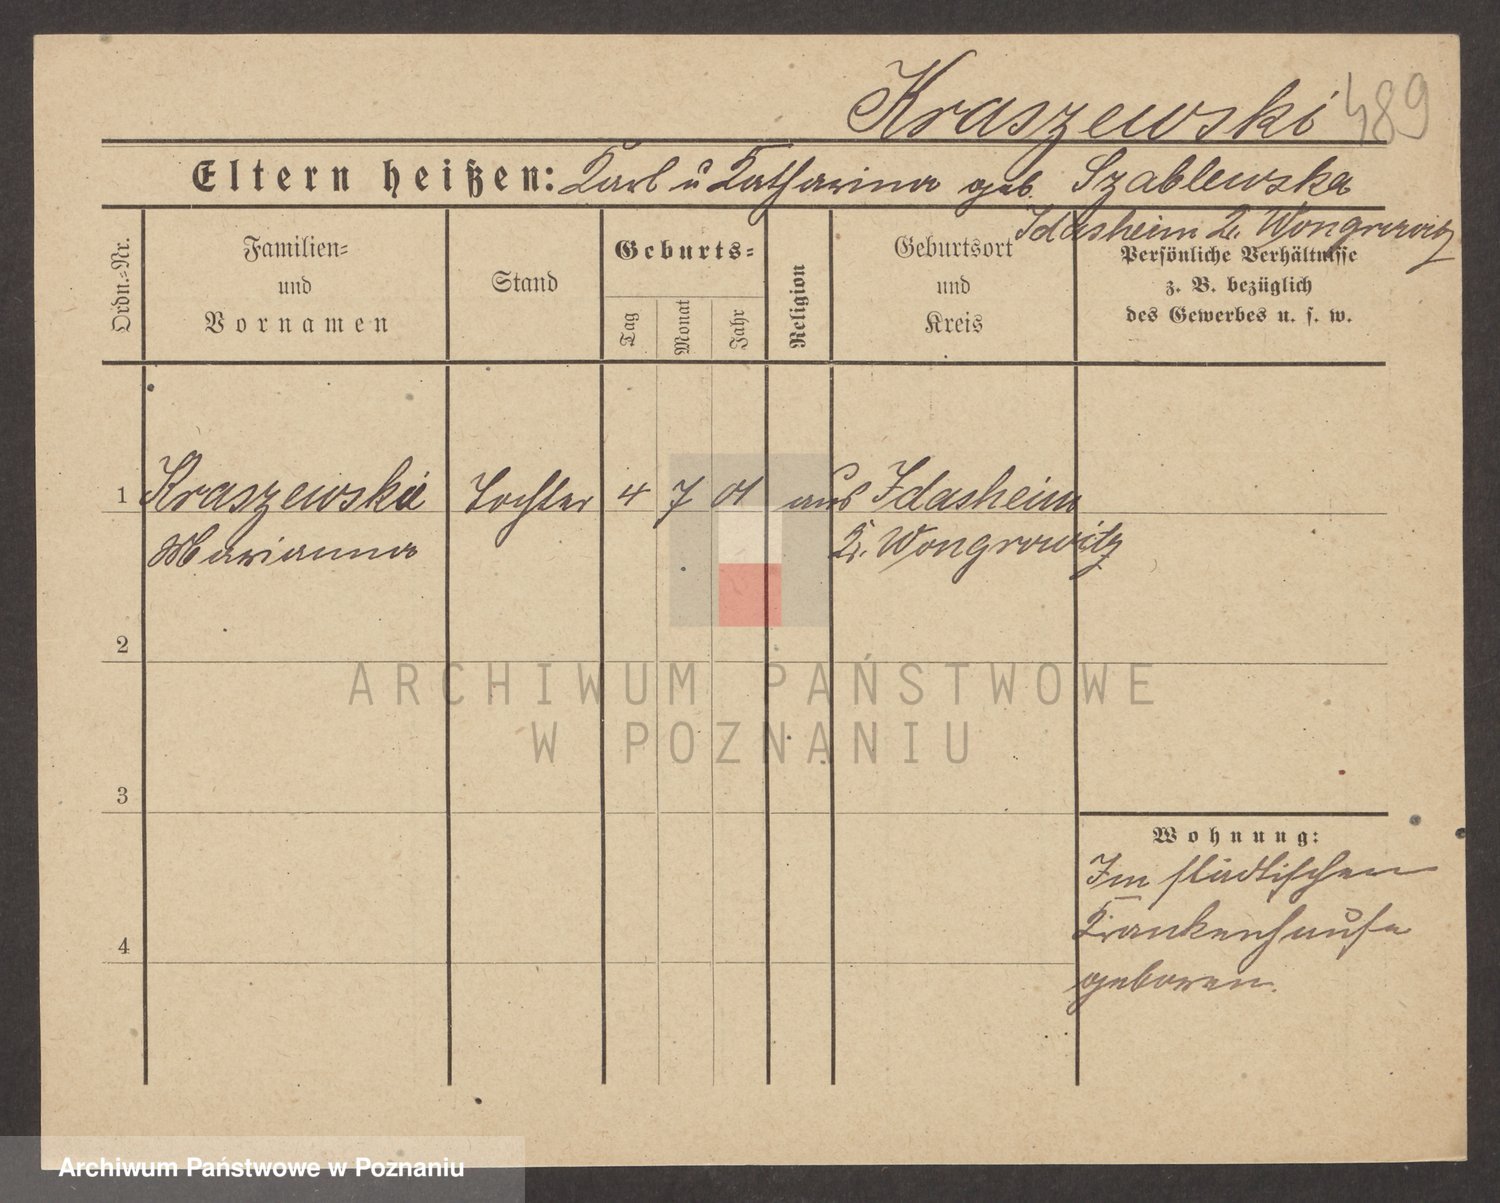 Kraszewski 489
Eltern heißen: Karl u Katharina geb. Szablewska
Idasheim Kr. Wongrowitz
Ordn.-Nr.
Familien-
und
Vornamen
Stand
Geburts-
Tag
Monat
Jahr
Religion
Geburtsort
und
Kreis
Persönliche Verhältnisse
z. B. bezüglich
des Gewerbes u. s. w.
1 Kraszewski Tochter 4 7 01 aus Idasheim
Marianna Kr. Wongrowitz
2
ARCHIWUM PAŃSTWOWE
W POZNANIU
3
Wohnung:
Im städtischen
Krankenhause
4
geboren.
Archiwum Państwowe w Poznaniu